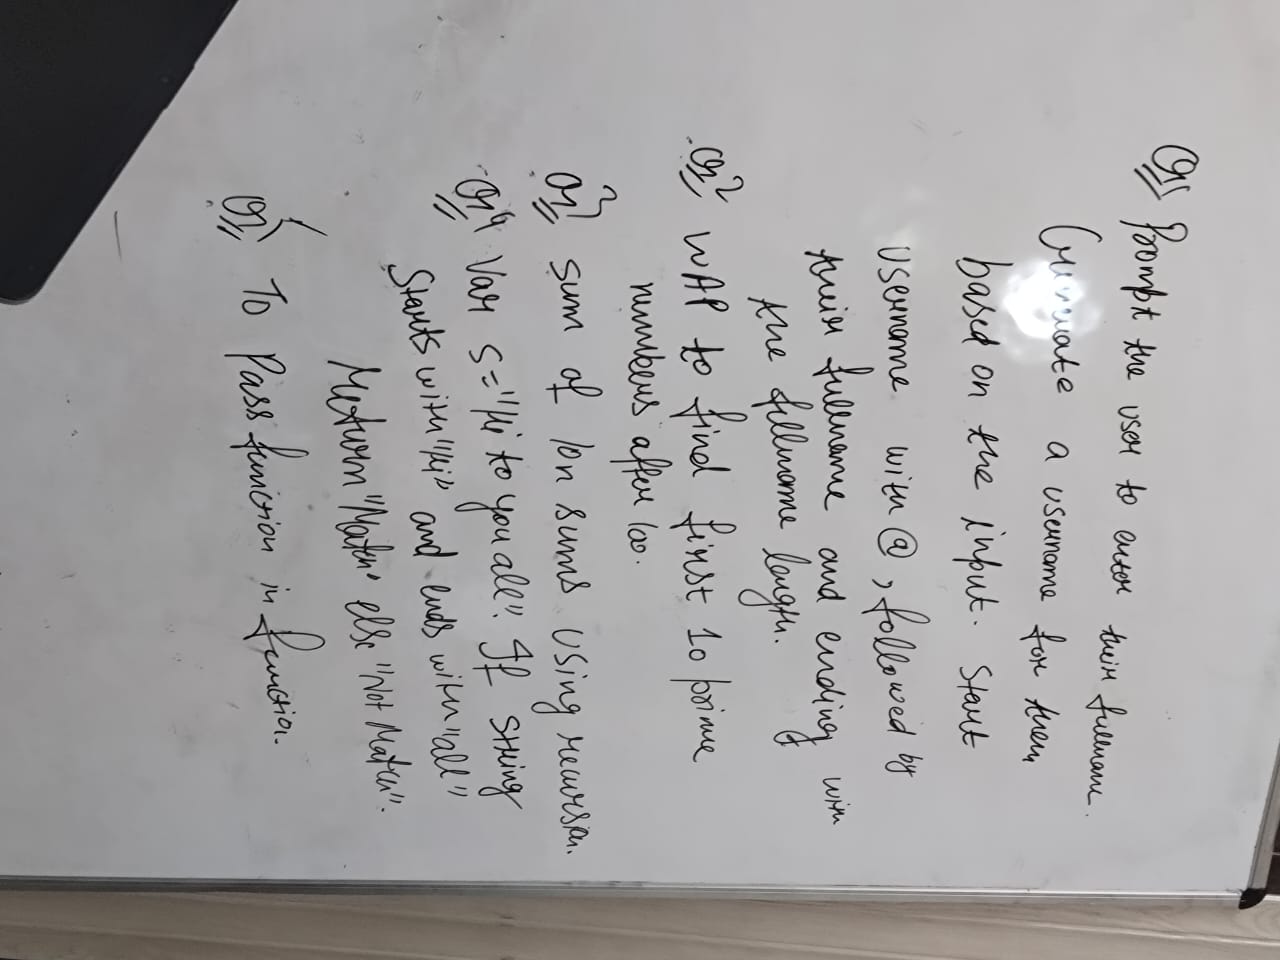 Qs1 Prompt the user to enter their fullname.
Generate a username for them
based on the input. Start
username with @, followed by
their fullname and ending with
the fullname length.
Qs2 WAP to find first 10 prime
numbers after 100.
Qs3 sum of n sums using recursion.
Qs4 Var S="Hi to you all". If string
Starts with "Hi" and ends with "all"
return "Match" else "Not Match".
Qs5 To Pass function in function.